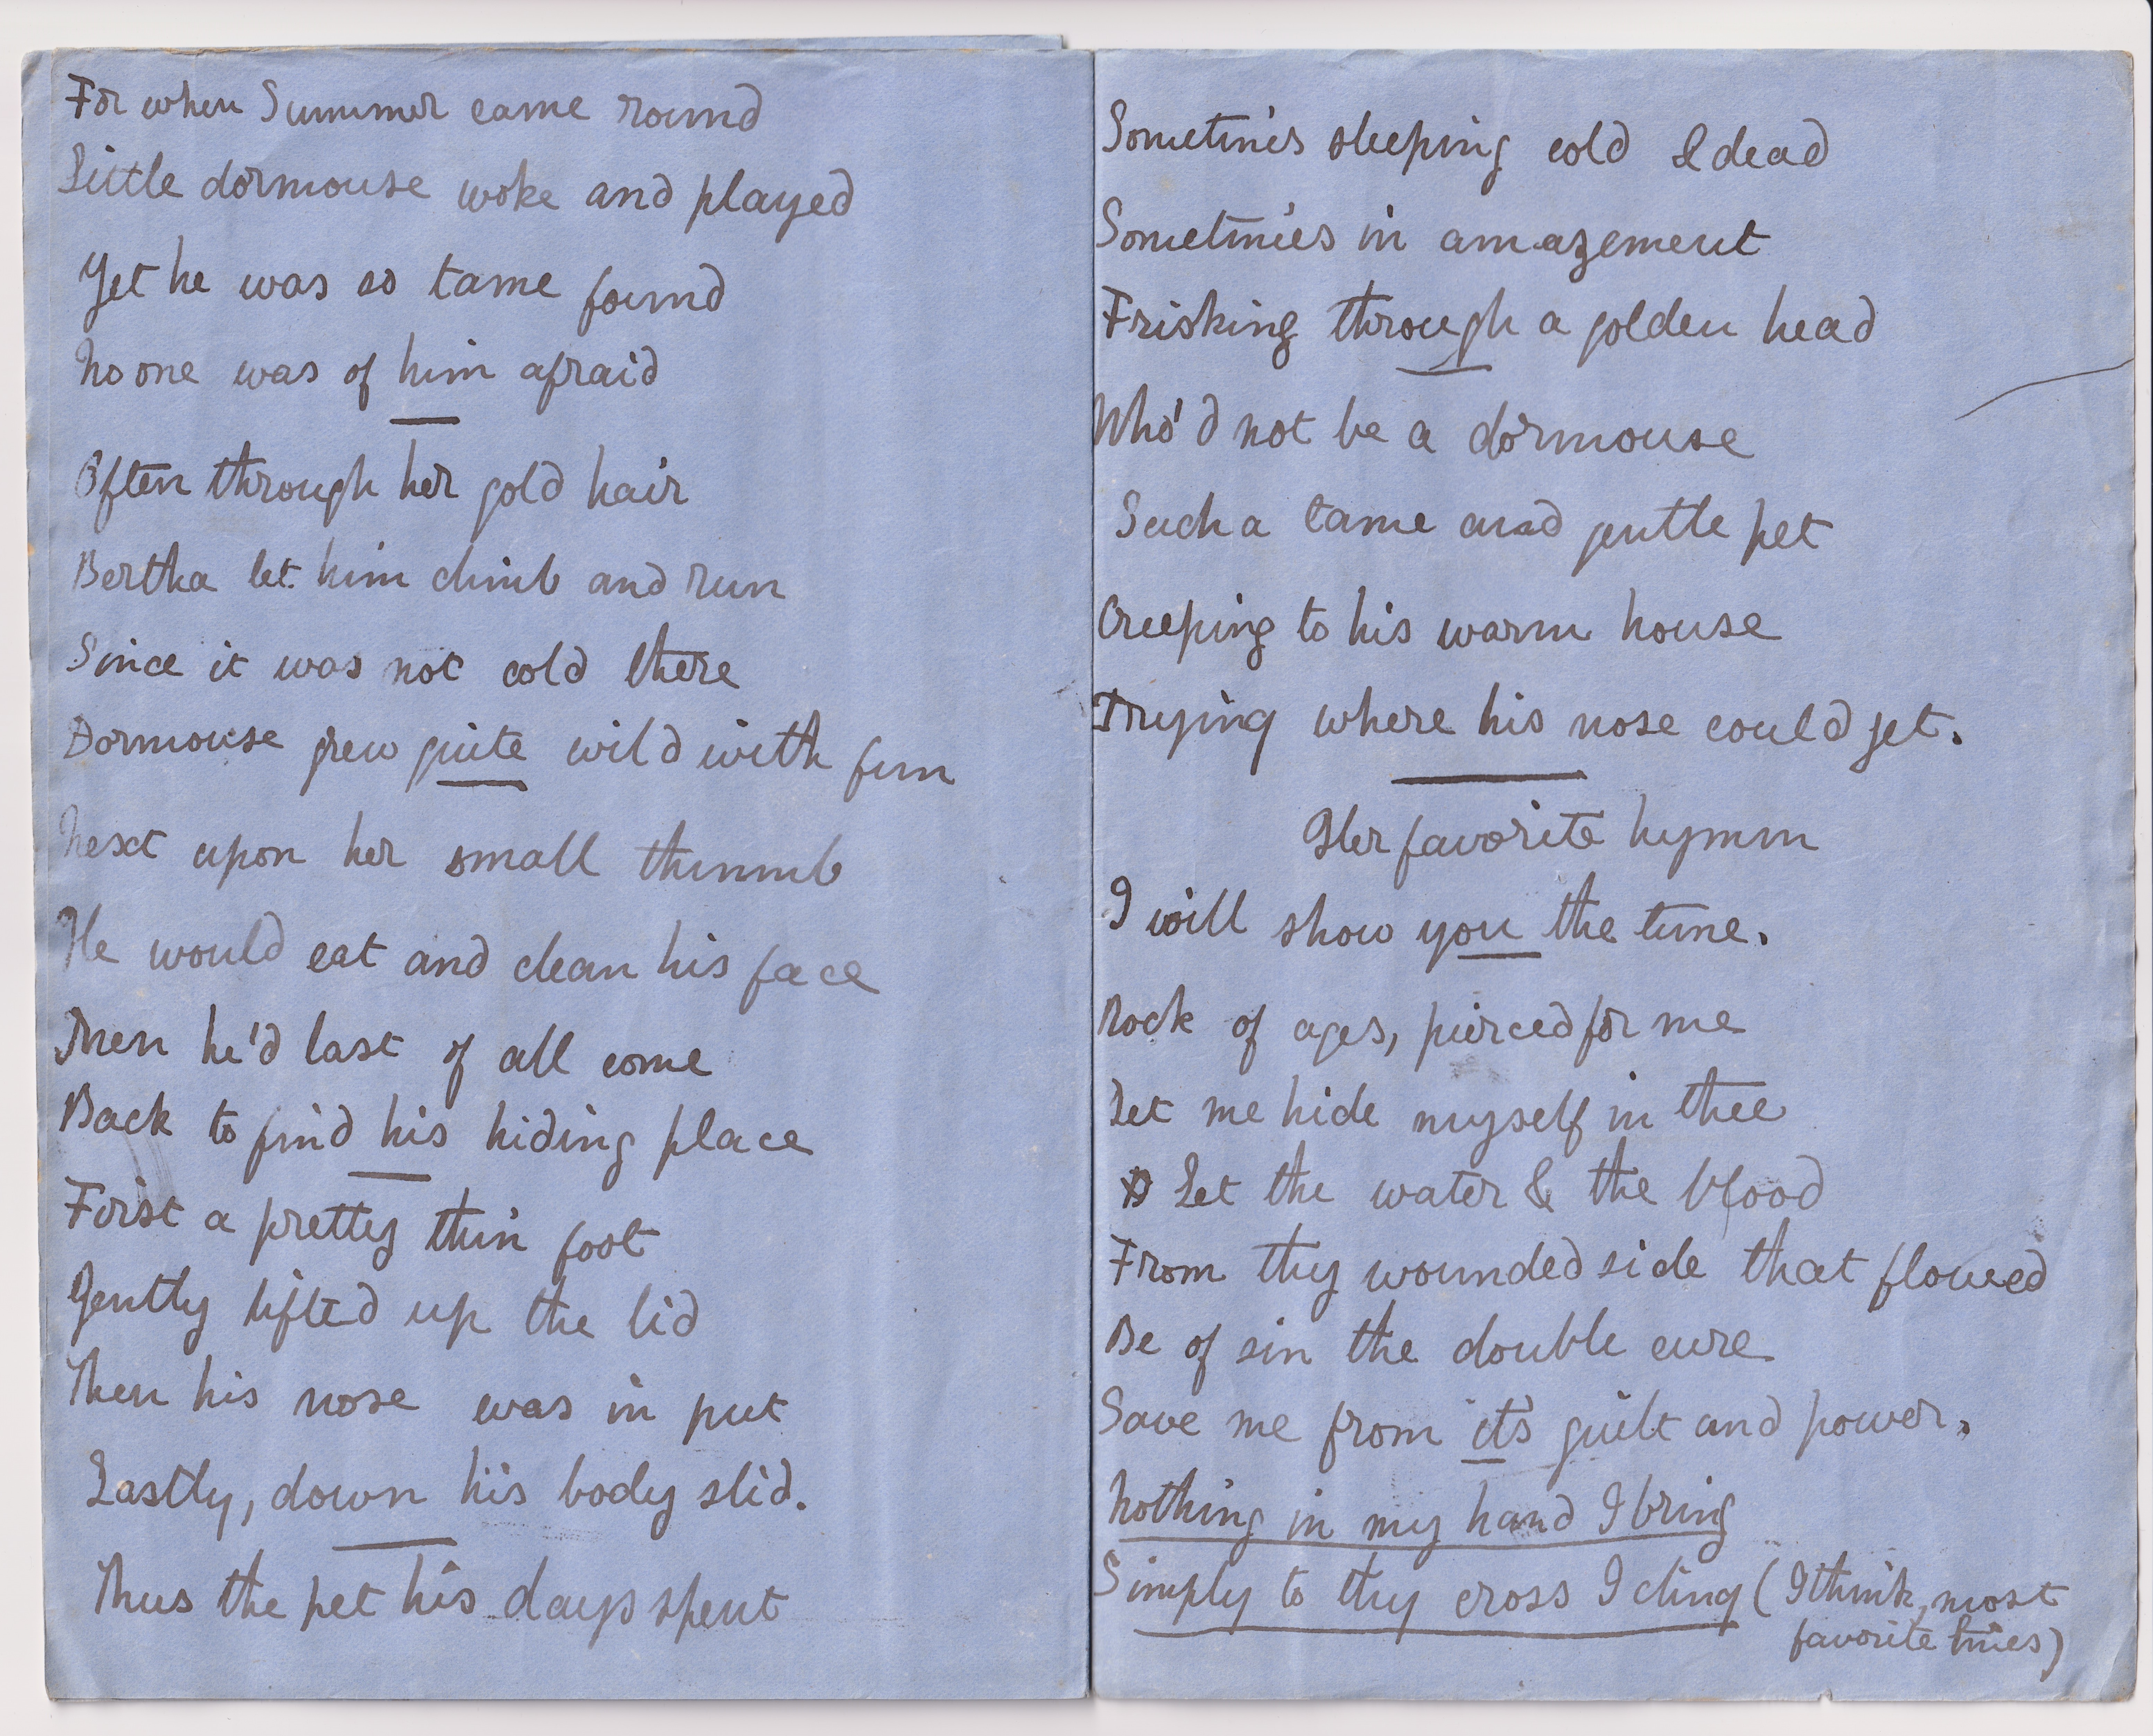 For when Summer came round
Little dormouse woke and played
Yet he was so tame found
No one was of him afraid
Often through her gold hair
Bertha let him climb and run
Since it was not cold there
Dormouse grew quite wild with fun
Next upon her small thumb
He would eat and clean his face
Then he'd last of all come
Back to find his hiding place
First a pretty thin foot
Gently lifted up the lid
Then his nose was in put
Lastly, down his body slid.
Thus the pet his days spent
Sometimes sleeping cold & dead
Sometimes in amazement
Frisking through a golden head
Who'd not be a dormouse
Such a tame and gentle pet
Creeping to his warm house
Trying where his nose could get.
Her favorite hymn
I will show you the tune.
Rock of ages, pierced for me
Let me hide myself in thee
Let the water & the blood
From thy wounded side that flowed
Be of sin the double cure
Save me from it's guilt and power.
Nothing in my hand I bring
Simply to thy cross I cling (I think, most
favorite lines)